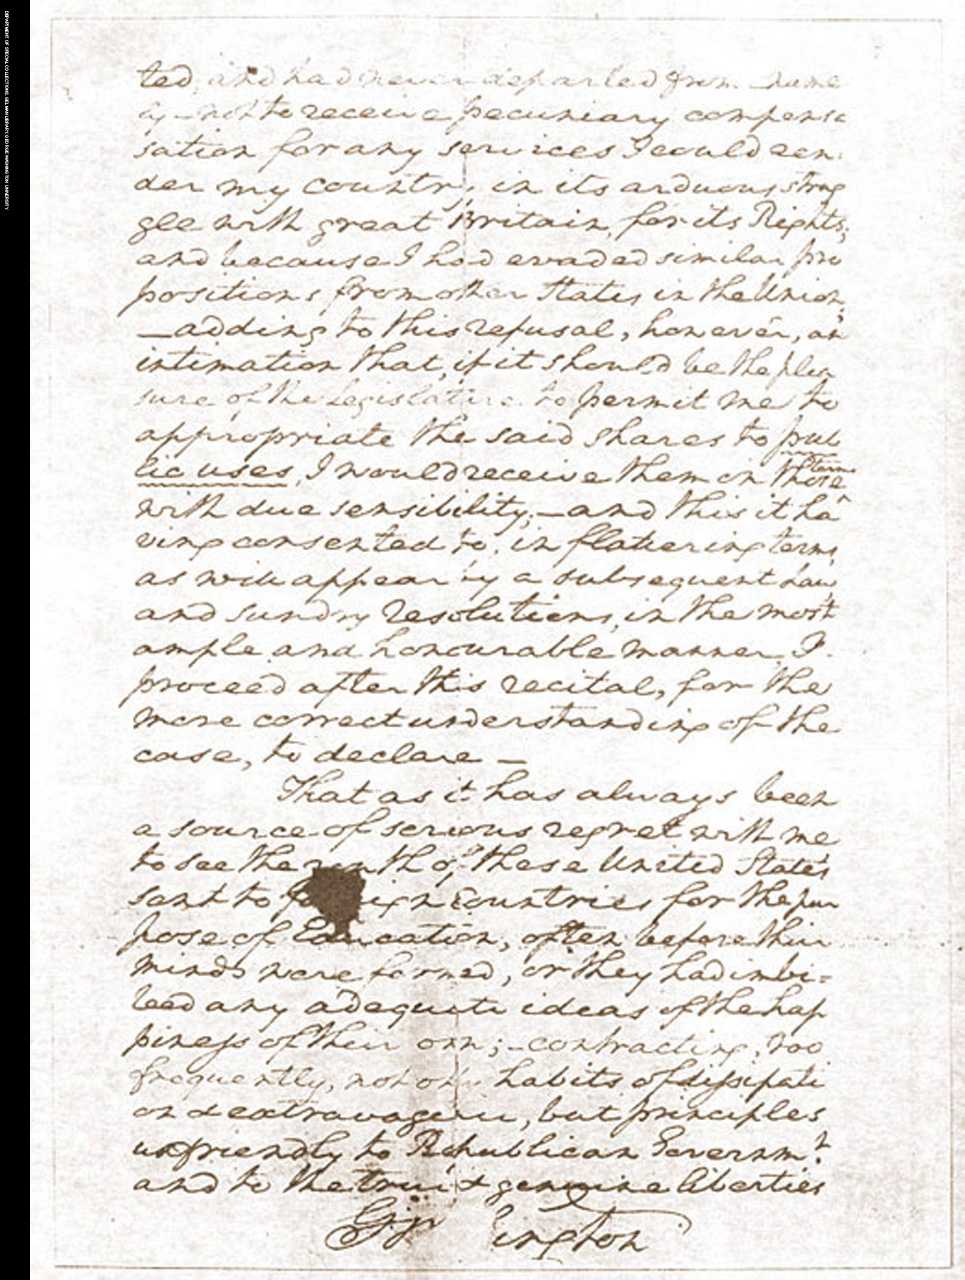 DEPARTMENT OF SPECIAL COLLECTIONS, GELMAN LIBRARY, GEORGE WASHINGTON UNIVERSITY
ted, and had never departed from—name
ly—not to receive pecuniary compen
sation for any services I could ren
der my country, in its arduous strug
gle with great Britain, for its Rights;
and because I had evaded similar pro
positions from other States in the Union;
—adding to this refusal, however, an
intimation that, if it should be the plea
sure of the Legislature to permit me to
appropriate the said shares to pub
lic uses, I would receive them on those terms
with due sensibility;—and this it ha
ving consented to, in flattering terms,
as will appear by a subsequent Law
and sundry resolutions, in the most
ample and honourable manner, I
proceed after this recital, for the
more correct understanding of the
case, to declare—
That as it has always been
a source of serious regret with me
to see the youth of these United States
sent to foreign Countries for the pur
pose of Education, often before their
minds were formed, or they had imbi-
bed any adequate ideas of the hap
piness of their own;—contracting, too
frequently, not only habits of dissipati
on & extravagence, but principles
unfriendly to Republican Governmt.
and to the true & genuine liberties